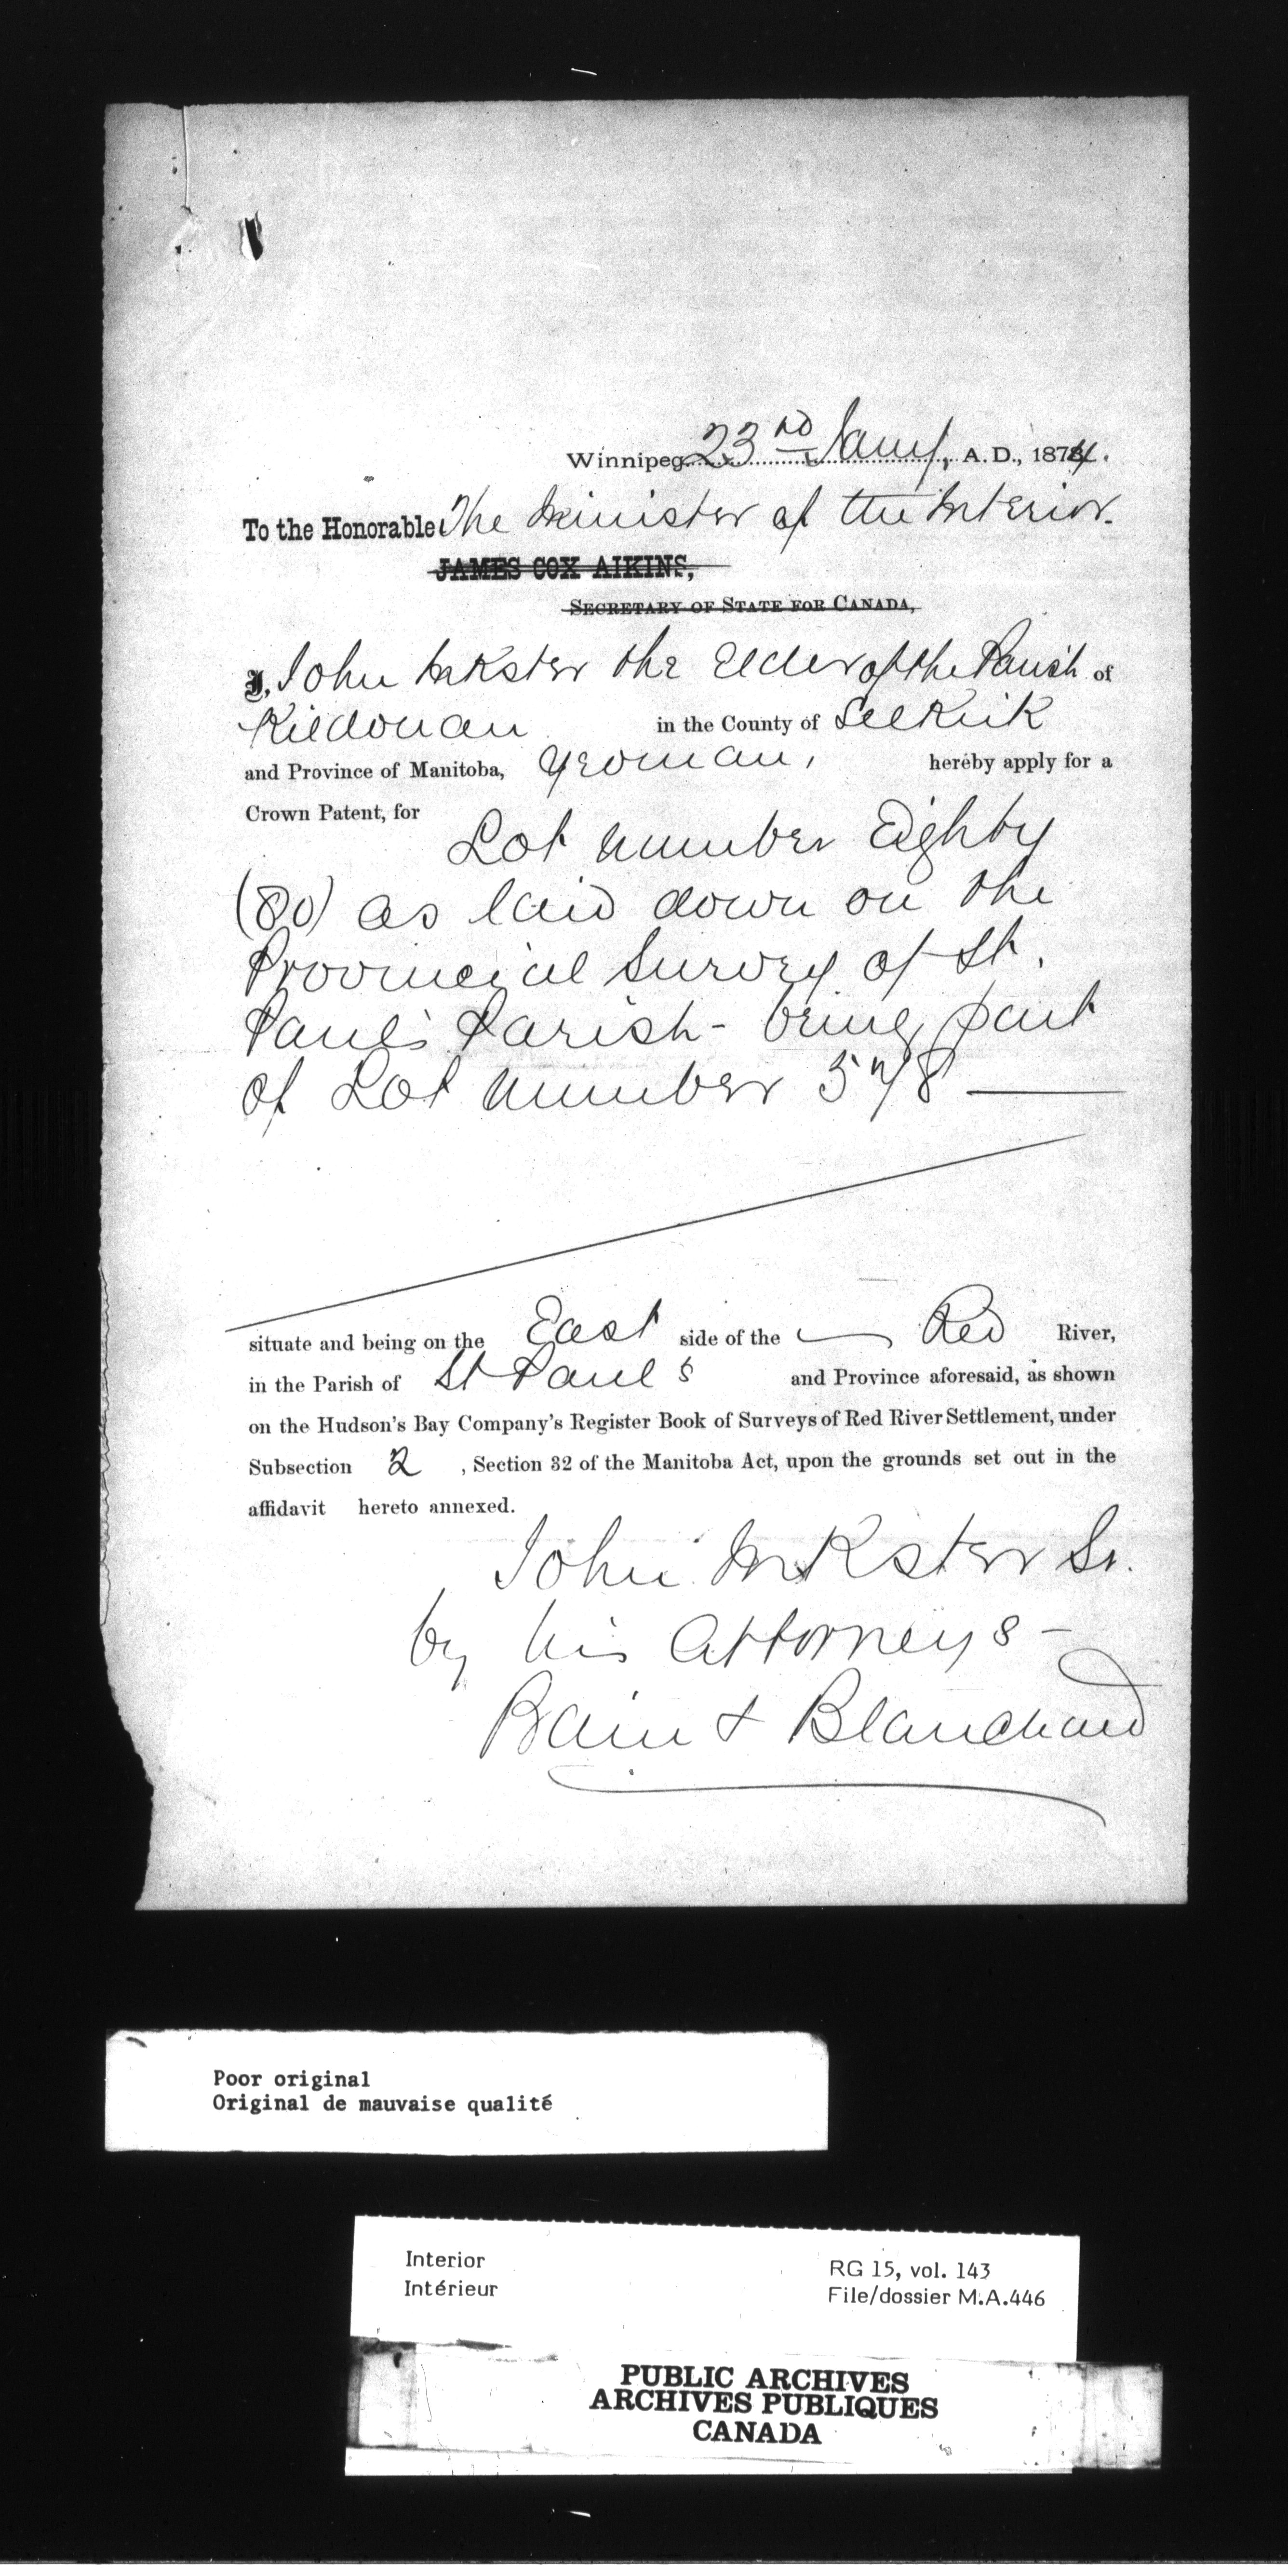 Winnipeg 23rd Jany, A.D., 1874.
To the Honorable The Minister of the Interior.
JAMES COX AIKINS,
SECRETARY OF STATE FOR CANADA,
I, John Inkster the Elder of the Parish of
Kildonan in the County of Selkirk
and Province of Manitoba, Yeoman, hereby apply for a
Crown Patent, for
Lot number Eighty
(80) as laid down on the
Provincial Survey of St.
Paul's Parish - being part
of Lot number 578
situate and being on the East side of the Red River,
in the Parish of St Paul's and Province aforesaid, as shown
on the Hudson's Bay Company's Register Book of Surveys of Red River Settlement, under
Subsection 2, Section 32 of the Manitoba Act, upon the grounds set out in the
affidavit hereto annexed.
John Inkster Sr.
by his Attorneys -
Bain & Blanchard
Poor original
Original de mauvaise qualité
Interior
Intérieur
RG 15, vol. 143
File/dossier M.A.446
PUBLIC ARCHIVES
ARCHIVES PUBLIQUES
CANADA